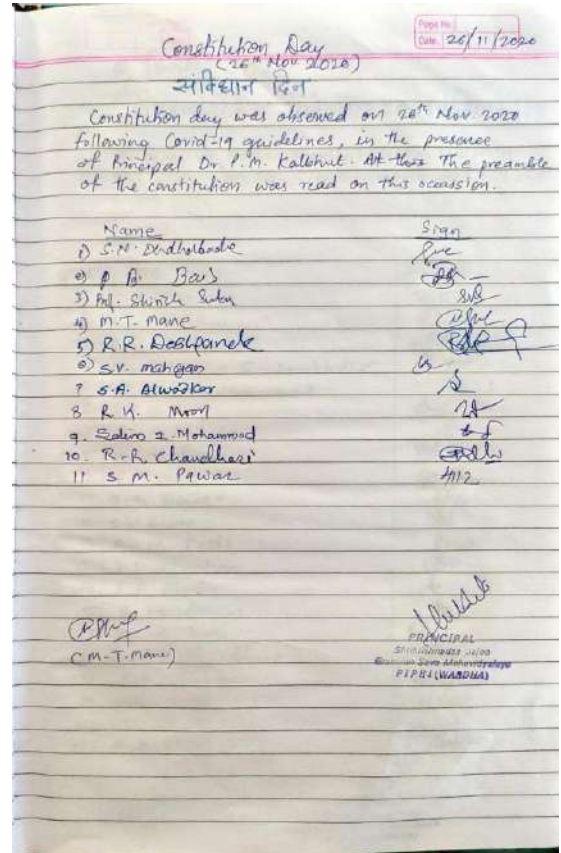 Page No.
Date 26/11/2020
Constitution Day
(26th Nov 2020)
संविधान दिन
Constitution day was observed on 26th Nov 2020
following Covid-19 guidelines, in the presence
of Principal Dr. P.M. Kalbhut. At this The preamble
of the constitution was read on this occassion.
Name Sign
1) S.N.
2) P. A. Bais
3) Prof. Shinde
4) M.T. Mane
5) R.R. Deshpande
6) S.V. mahajan
7 S.A. Alwadkar
8 R K. Moon
9. Salim I. Mohammad
10. R.R. Chaudhari
11 S M. Pawar
(M-T. Mane)
PRINCIPAL
Seva Mahavidyalaya
PIPRI (WARDHA)